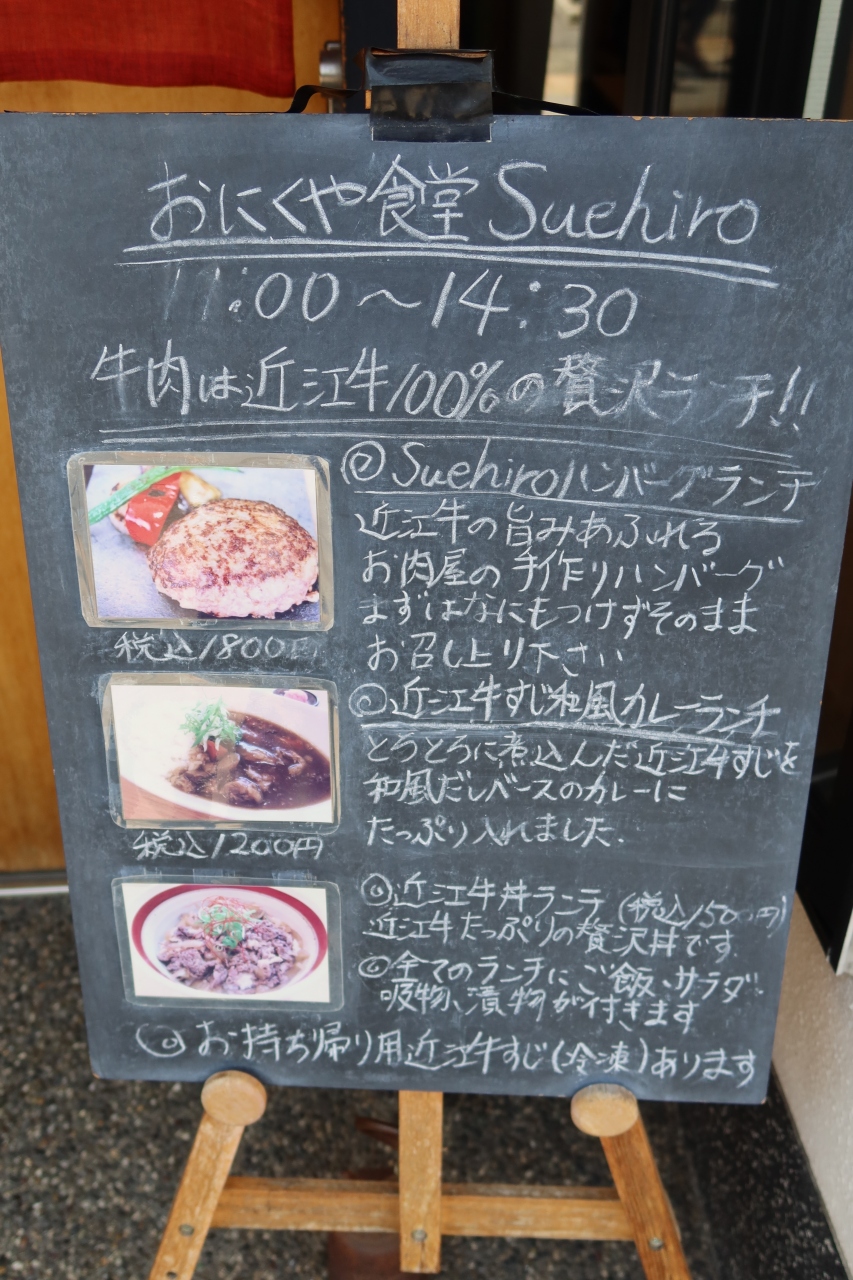 おにくや食堂Suehiro
11:00〜14:30
牛肉は近江牛100%の贅沢ランチ!!
◎Suehiroハンバーグランチ
近江牛の旨みあふれる
お肉屋の手作りハンバーグ
まずはなにもつけずそのまま
お召し上り下さい
税込1800円
◎近江牛すじ和風カレーランチ
とろとろに煮込んだ近江牛すじを
和風だしベースのカレーに
たっぷり入れました.
税込1200円
◎近江牛丼ランチ(税込1500円)
近江牛たっぷりの贅沢丼です
◎全てのランチにご飯、サラダ
吸物、漬物が付きます
◎お持ち帰り用近江牛すじ(冷凍)あります